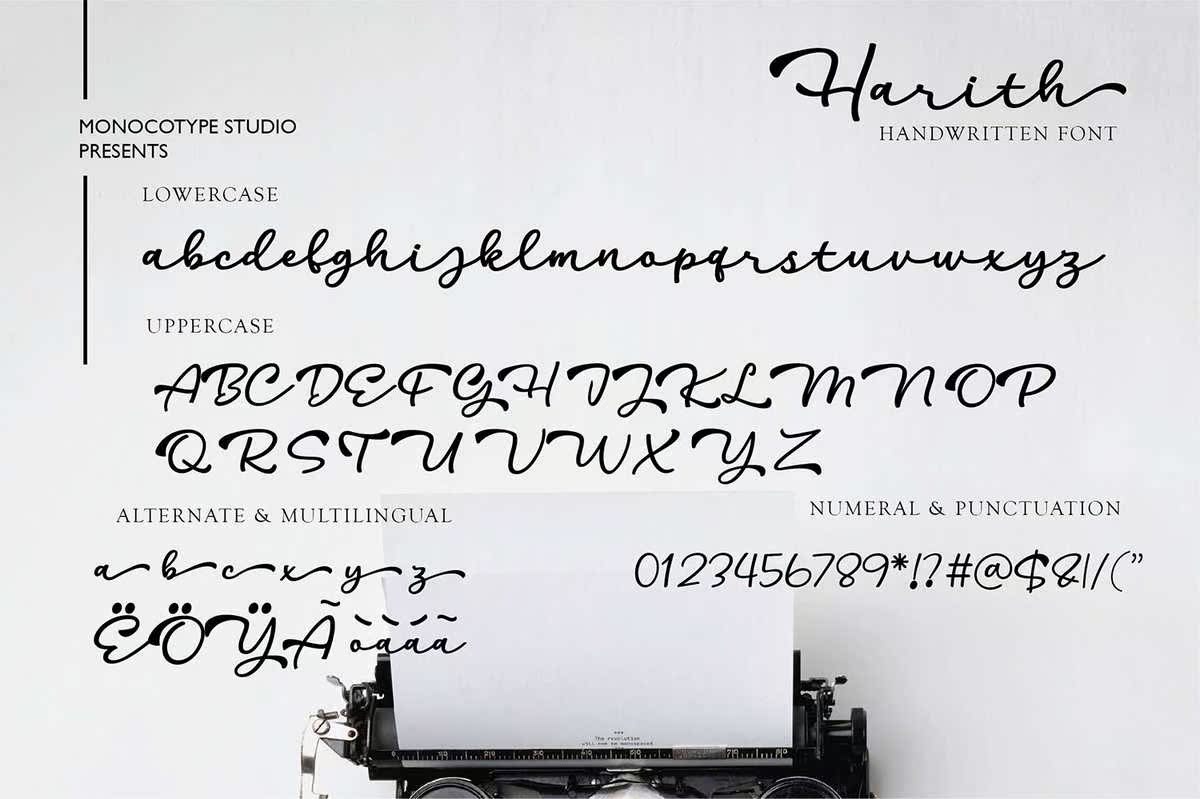 MONOCOTYPE STUDIO
PRESENTS
Harith
HANDWRITTEN FONT
LOWERCASE
abcdefghijklmnopqrstuvwxyz
UPPERCASE
ABCDEFGHIJKLMNOP
QRSTUVWXYZ
ALTERNATE & MULTILINGUAL
a b c x y z
ËÖŸÃ òàáã
NUMERAL & PUNCTUATION
0123456789*!?#@$&|/(”
***
The revolution
will not be monospaced